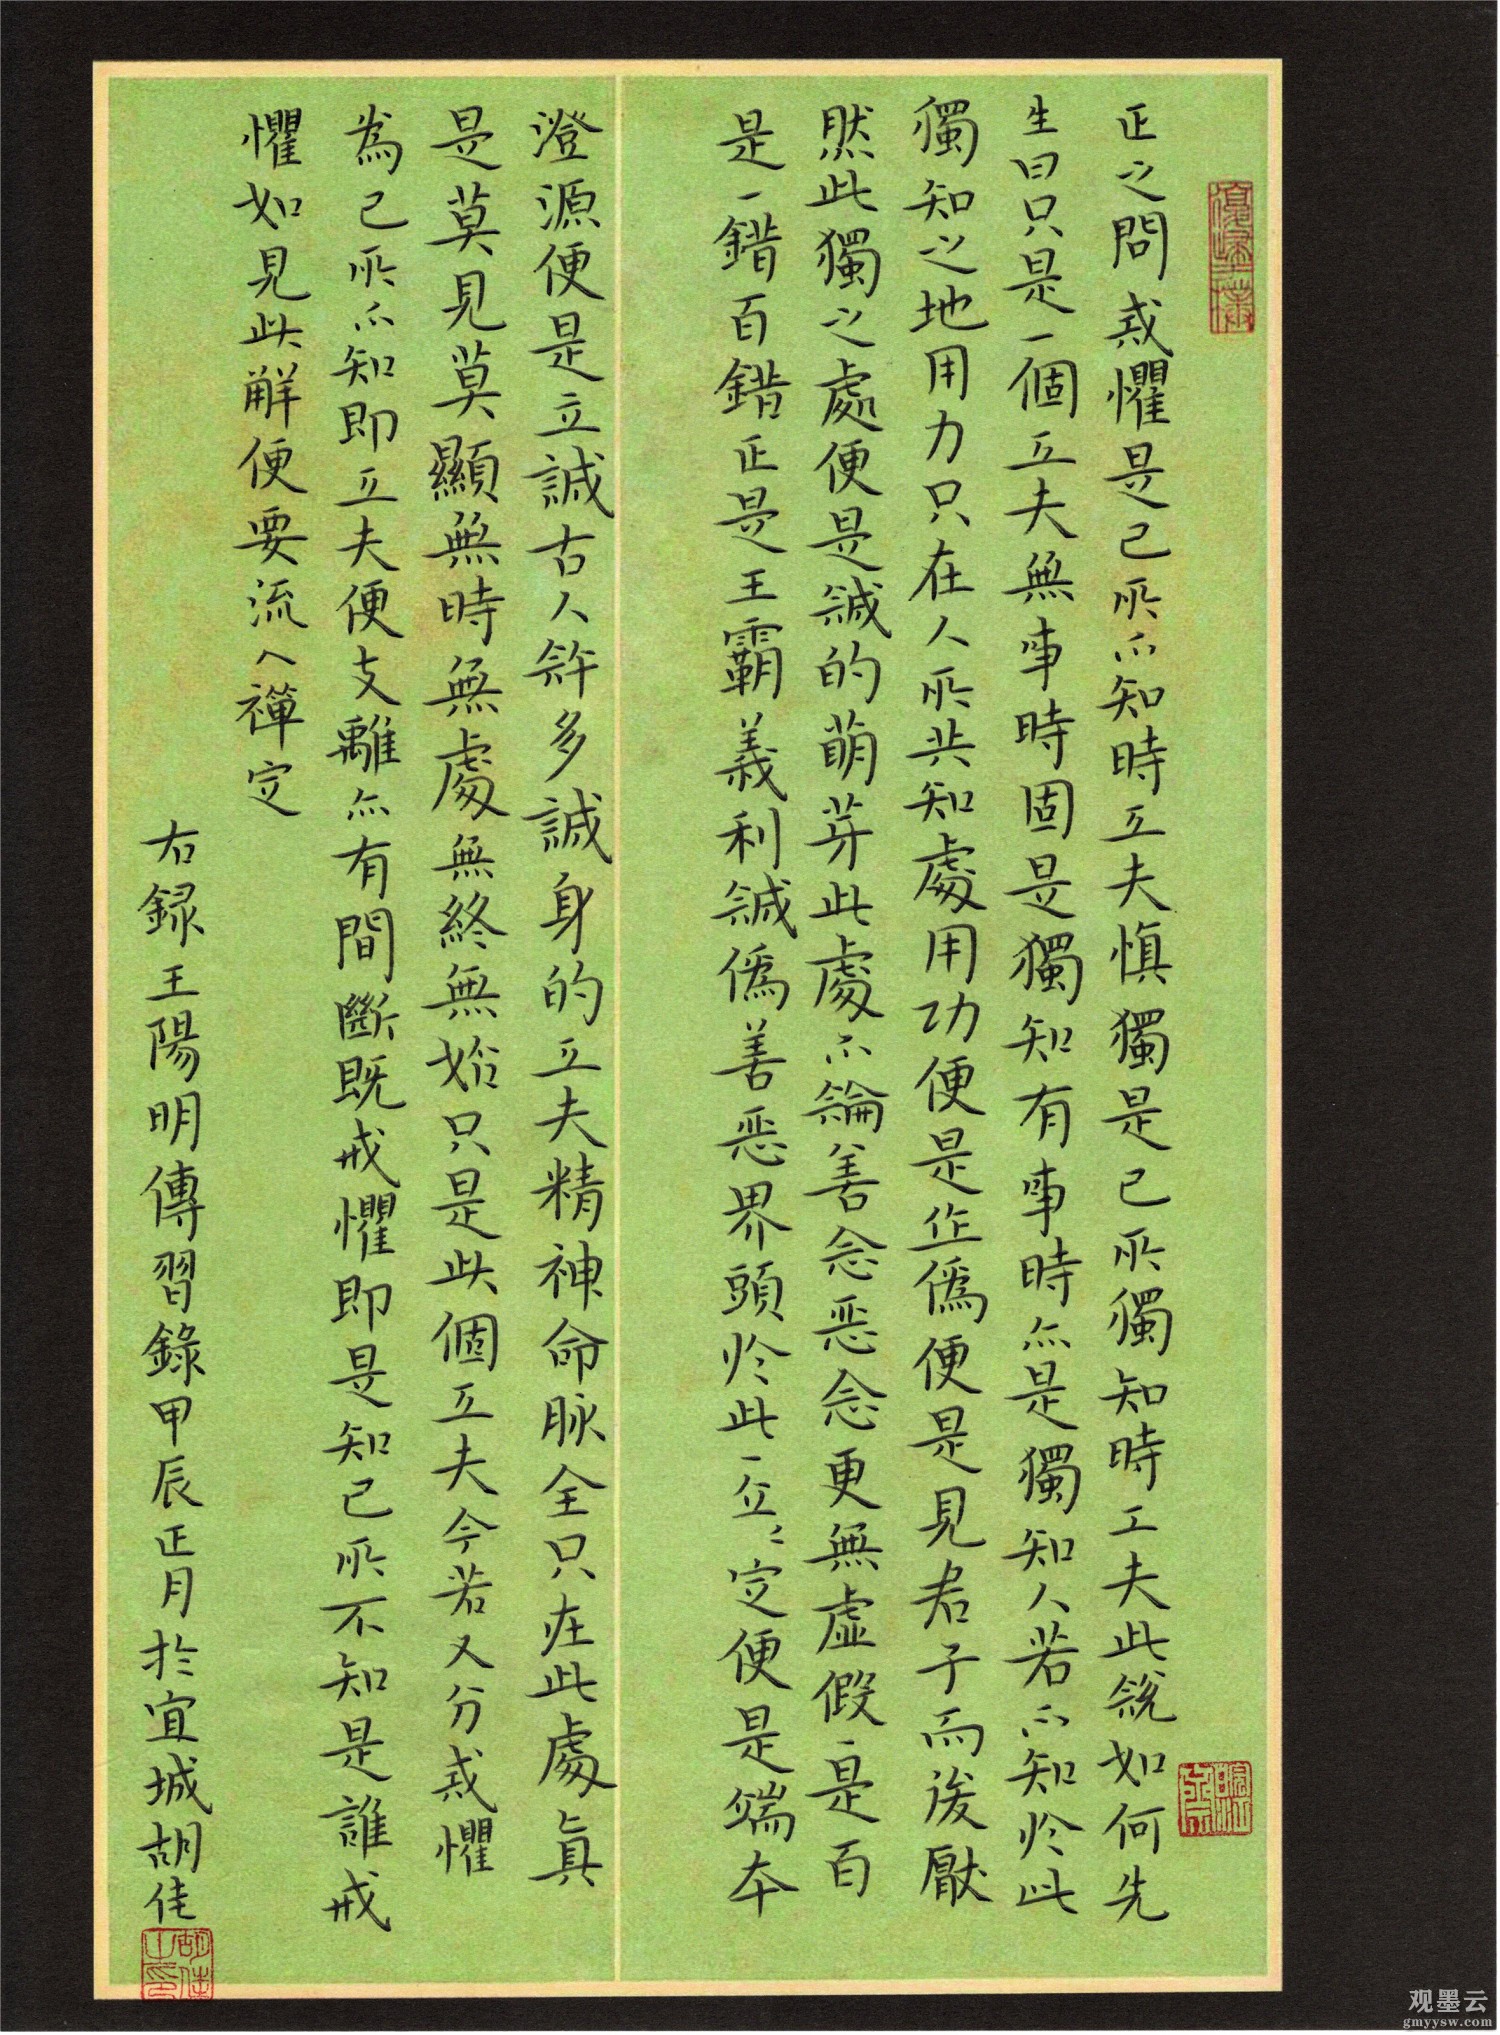 正之問戒懼是己所不知時工夫慎獨是己所獨知時工夫此說如何先
生曰只是一個工夫無事時固是獨知有事時亦是獨知人若不知於此
獨知之地用力只在人所共知處用功便是作偽便是見君子而後厭
然此獨之處便是誠的萌芽此處不論善念惡念更無虛假一是百
是一錯百錯正是王霸義利誠偽善惡界頭於此一立立定便是端本
澄源便是立誠古人許多誠身的工夫精神命脈全只在此處真
是莫見莫顯無時無處無終無始只是此個工夫今若又分戒懼
為己所不知即工夫便支離亦有間斷既戒懼即是知己所不知是誰戒
懼如見此解便要流入禪定
右録王陽明傳習錄甲辰正月於宜城胡佳
胡佳之印
观墨云
gmyysw.com